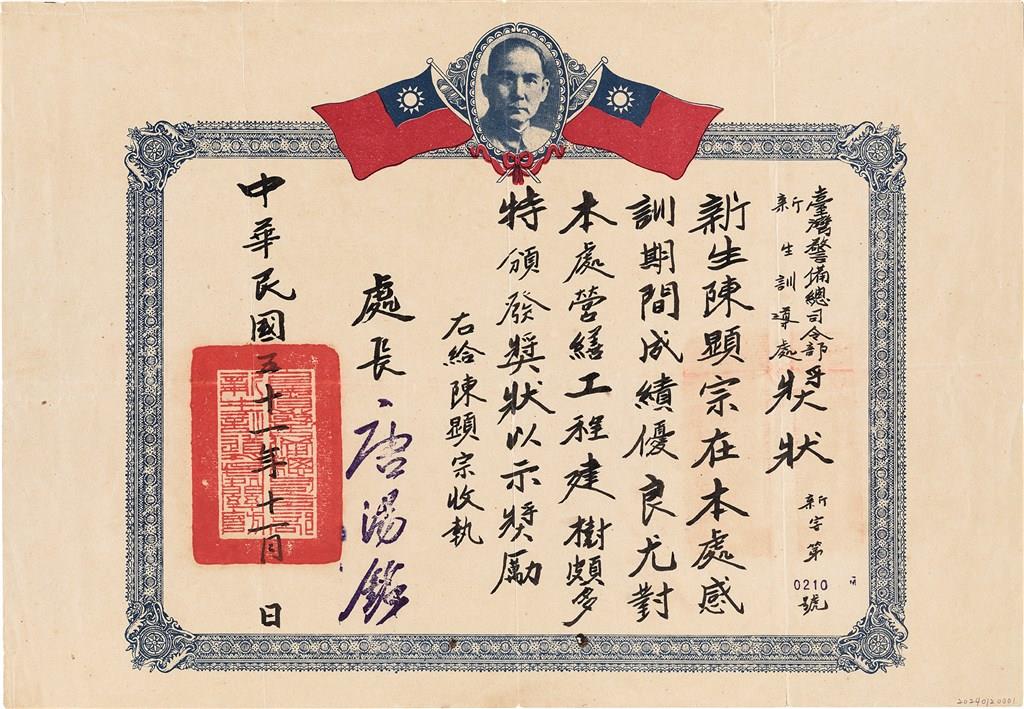 臺灣警備總司令部
新生訓導處
奬狀
新字第
0210
號
新生陳顯宗在本處感
訓期間成績優良尤對
本處營繕工程建樹頗多
特頒發獎狀以示獎勵
右給陳顯宗收執
處長 唐湯銘
中華民國五十一年十一月 日
20240120001